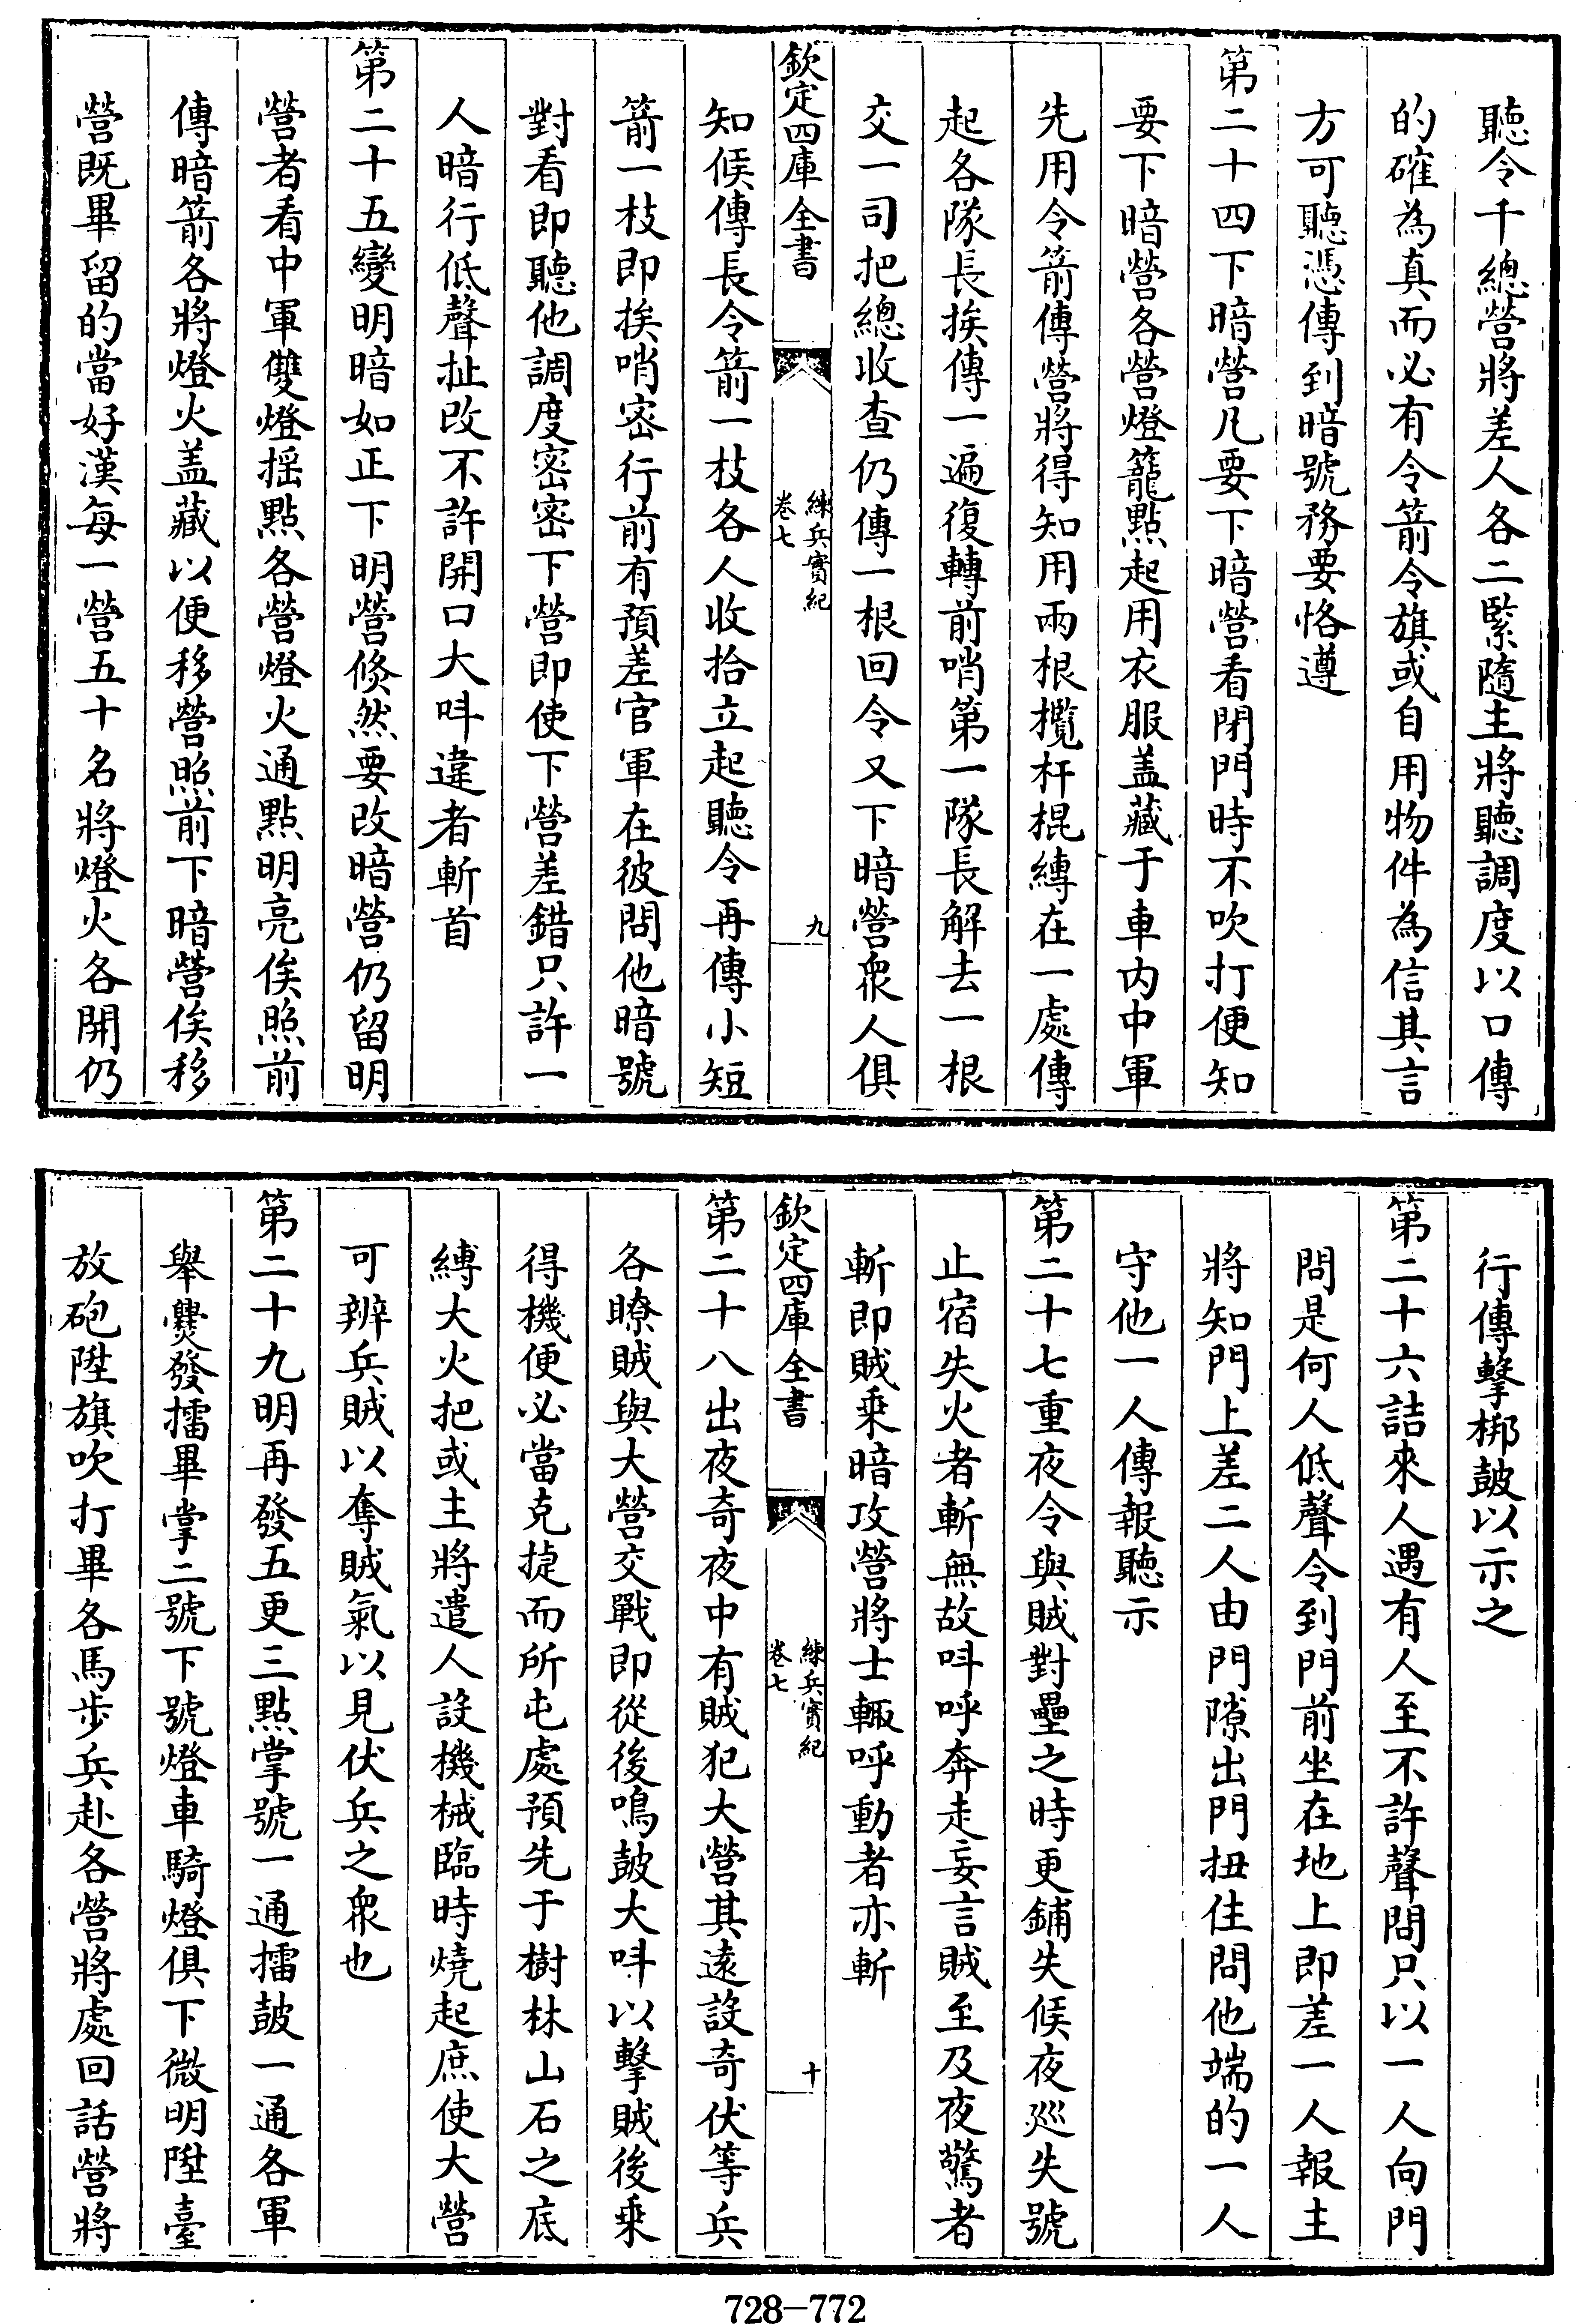 聽令千總營將差人各二緊隨主將聽調度以口傳
的確為真而必有令箭令旗或自用物件為信其言
方可聽憑傳到暗號務要恪遵
第二十四下暗營凡要下暗營看閉門時不吹打便知
要下暗營各營燈籠點起用衣服盖藏于車内中軍
先用令箭傳營將得知用兩根攬杆棍縳在一處傳
起各隊長挨傳一遍復轉前哨第一隊長解去一根
交一司把總收查仍傳一根回令又下暗營衆人俱
欽定四庫全書
練兵實紀
卷七
九
知候傳長令箭一枝各人收拾立起聽令再傳小短
箭一枝即挨哨密行前有預差官軍在彼問他暗號
對看即聽他調度密密下營即使下營差錯只許一
人暗行低聲扯改不許開口大呌違者斬首
第二十五變明暗如正下明營倐然要改暗營仍留明
營者看中軍雙燈揺點各營燈火通點明亮俟照前
傳暗箭各將燈火盖藏以便移營照前下暗營俟移
營既畢留的當好漢每一營五十名將燈火各開仍
行傳擊梆皷以示之
第二十六詰來人遇有人至不許聲問只以一人向門
問是何人低聲令到門前坐在地上即差一人報主
將知門上差二人由門隙出門扭住問他端的一人
守他一人傳報聽示
第二十七重夜令與賊對壘之時更鋪失候夜廵失號
止宿失火者斬無故呌呼奔走妄言賊至及夜驚者
斬即賊乘暗攻營將士輙呼動者亦斬
欽定四庫全書
練兵實紀
卷七
十
第二十八出夜奇夜中有賊犯大營其逺設奇伏等兵
各瞭賊與大營交戰即從後鳴皷大呌以擊賊後乗
得機便必當克捷而所屯處預先于樹林山石之底
縛大火把或主將遣人設機械臨時燒起庶使大營
可辨兵賊以奪賊氣以見伏兵之衆也
第二十九明再發五更三點掌號一通擂皷一通各軍
舉爨發擂畢掌二號下號燈車騎燈俱下微明陞臺
放砲陞旗吹打畢各馬步兵赴各營將處回話營將
728-772